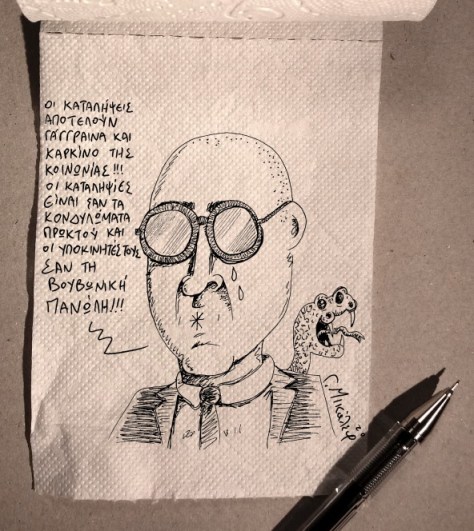 ΟΙ ΚΑΤΑΛΗΨΕΙΣ
ΑΠΟΤΕΛΟΥΝ
ΓΑΓΓΡΑΙΝΑ ΚΑΙ
ΚΑΡΚΙΝΟ ΤΗΣ
ΚΟΙΝΩΝΙΑΣ!!!
ΟΙ ΚΑΤΑΛΗΨΙΕΣ
ΕΙΝΑΙ ΣΑΝ ΤΑ
ΚΟΝΔΥΛΩΜΑΤΑ
ΠΡΩΚΤΟΥ ΚΑΙ
ΟΙ ΥΠΟΚΙΝΗΤΕΣ ΤΟΥΣ
ΣΑΝ ΤΗ
ΒΟΥΒΩΝΙΚΗ
ΠΑΝΩΛΗ!!!
Γ. Μικάλεφ